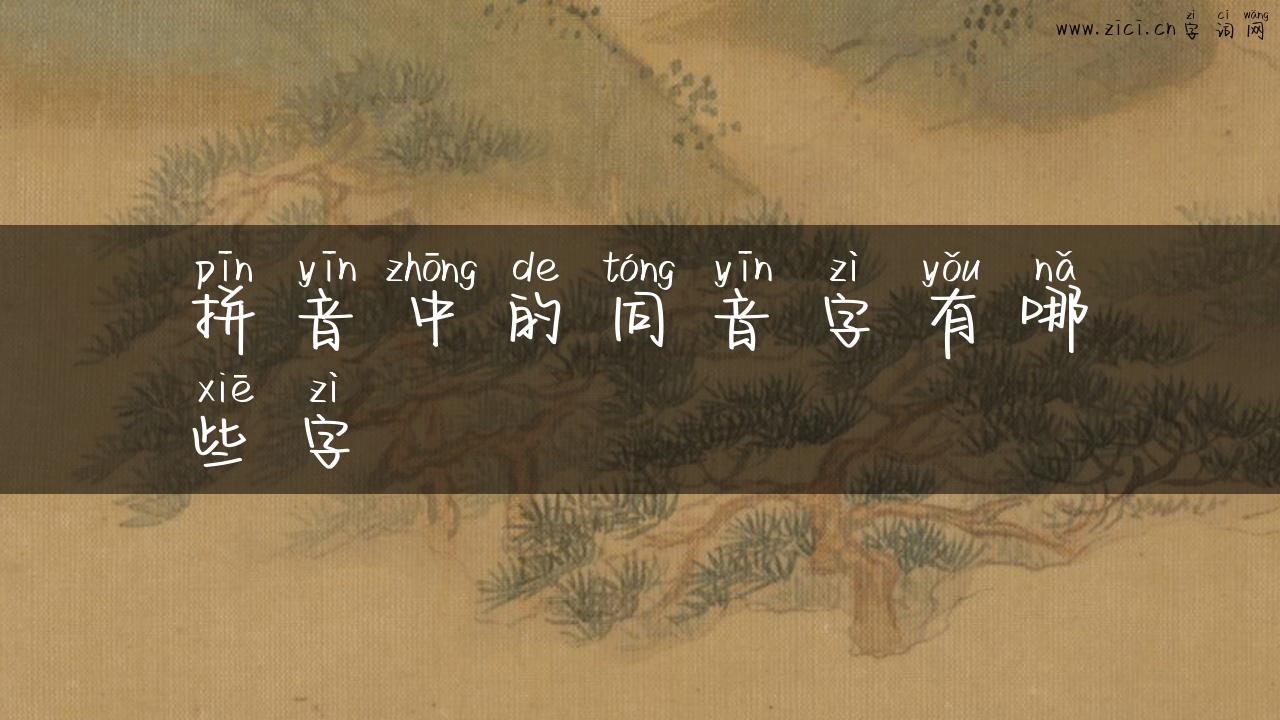 zì cí wǎng
www.zici.cn 字 词 网
pīn yīn zhōng de tóng yīn zì yǒu nǎ
拼 音 中 的 同 音 字 有 哪
xiē zì
些 字